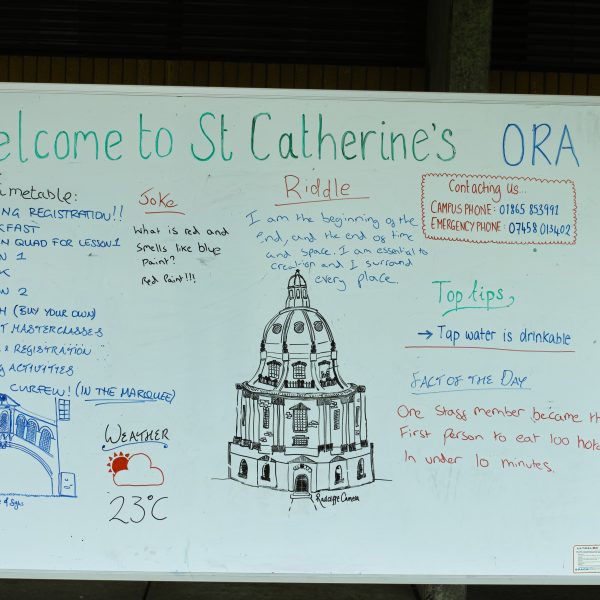 elcome to St Catherine's ORA
imetable:
NG REGISTRATION!!
KFAST
N QUAD FOR LESSON 1
N 1
K
N 2
H (BUY YOUR OWN)
T MASTERCLASSES
& REGISTRATION
G ACTIVITIES
CURFEW! (IN THE MARQUEE)
Joke
What is red and
smells like blue
paint?
Red Paint!!!
WEATHER
23°C
Riddle
I am the beginning of the
end, and the end of time
and space. I am essential to
creation and I surround
every place.
Radcliffe Camera
Contacting Us...
CAMPUS PHONE: 01865 853991
EMERGENCY PHONE: 07458 013402
Top tips,
→ Tap water is drinkable
FACT OF THE DAY
One Staff member became th
First person to eat 100 hot
In under 10 minutes.